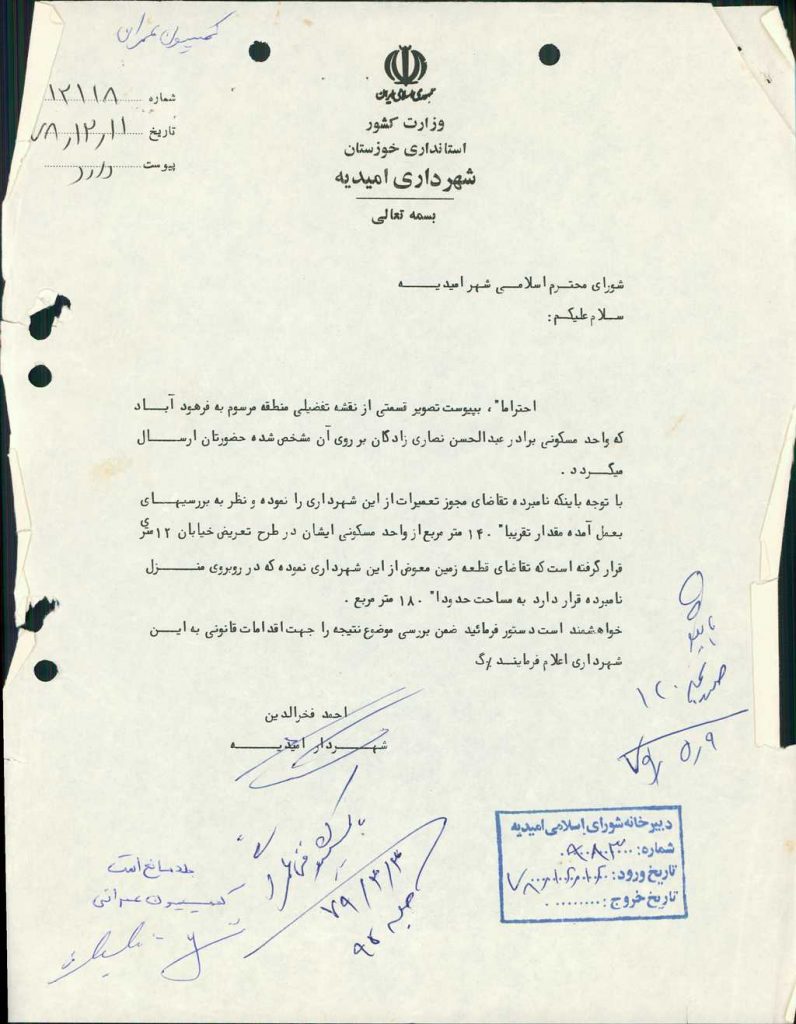 کمیسیون عمران
جمهوری اسلامی ایران
وزارت کشور
استانداری خوزستان
شهرداری امیدیه
بسمه تعالی
شماره ۱۲۱۱۸
تاریخ ۷۸،۱۲،۱۱
پیوست دارد
شورای محترم اسلامی شهر امیدیه
سلام علیکم:
احتراما"، بپیوست تصویر قسمتی از نقشه تفضیلی منطقه مرسوم به فرهود آباد
که واحد مسکونی برادر عبدالحسن نصاری زادگان بر روی آن مشخص شده حضورتان ارسال
میگردد .
با توجه باینکه نامبرده تقاضای مجوز تعمیرات از این شهرداری را نموده و نظر به بررسیهای
بعمل آمده مقدار تقریبا" ۱۴۰ متر مربع از واحد مسکونی ایشان در طرح تعریض خیابان ۱۲متری
قرار گرفته است که تقاضای قطعه زمین معوض از این شهرداری نموده که در روبروی منزل
نامبرده قرار دارد به مساحت حدودا" ۱۸۰ متر مربع .
خواهشمند است دستور فرمائید ضمن بررسی موضوع نتیجه را جهت اقدامات قانونی به این
شهرداری اعلام فرمایند
احمد فخرالدین
شهردار امیدیه
۱۲۰
۷۹٫۵٫۹
۷۹/۳/۳
جلسه ۹۲
بلامانع است
کمیسیون عمرانی
دبیرخانه شورای اسلامی امیدیه
شماره:
تاریخ ورود:
تاریخ خروج :